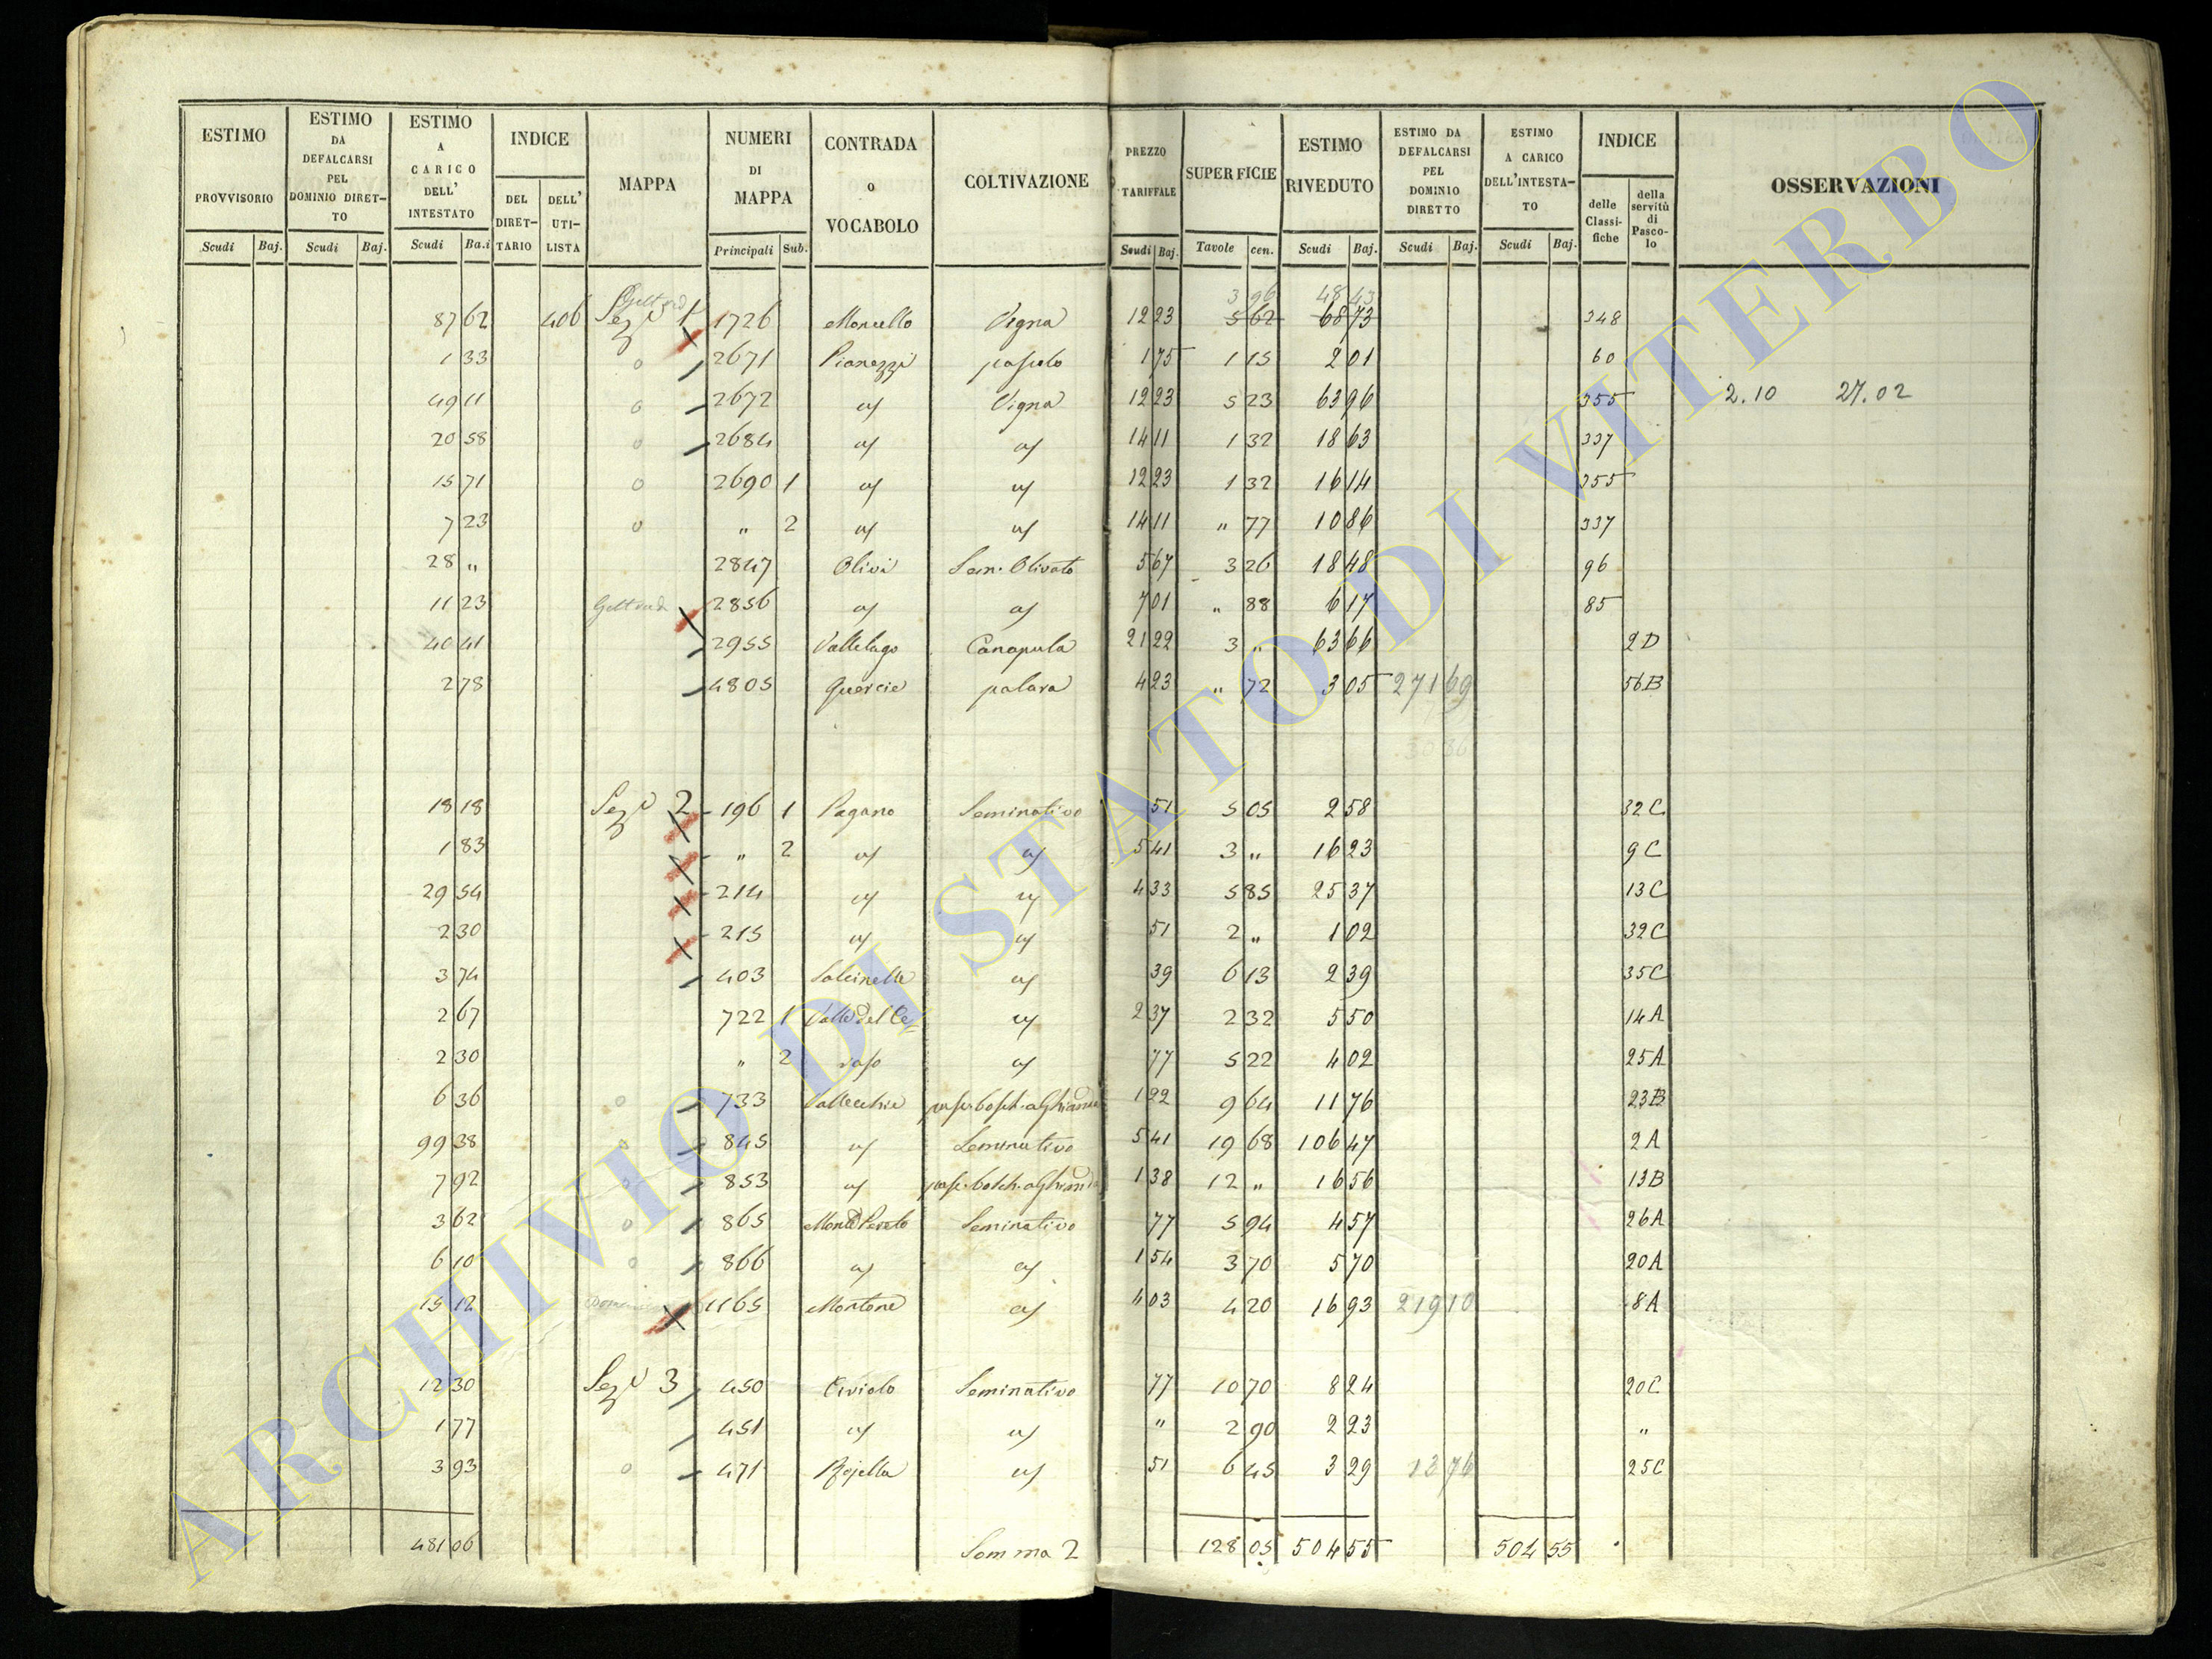 ESTIMO PROVVISORIO Scudi Baj.
ESTIMO DA DEFALCARSI PEL DOMINIO DIRET-TO Scudi Baj.
ESTIMO A CARICO DELL' INTESTATO Scudi Ba.i
INDICE DEL DIRET-TARIO DELL' UTI-LISTA
MAPPA
NUMERI DI MAPPA Principali Sub.
CONTRADA O VOCABOLO
COLTIVAZIONE
PREZZO TARIFFALE Scudi Baj.
SUPERFICIE Tavole cen.
ESTIMO RIVEDUTO Scudi Baj.
ESTIMO DA DEFALCARSI PEL DOMINIO DIRETTO Scudi Baj.
ESTIMO A CARICO DELL'INTESTA-TO Scudi Baj.
INDICE delle Classi-fiche della servitù di Pasco-lo
OSSERVAZIONI
3 96 48 43
87 62 406 1 1726 Vigna 12 23 5 62 68 73 348
1 33 o 2671 1 75 1 15 2 01 60
49 11 o 2672 Vigna 12 23 5 23 63 96 355 2.10 27.02
20 58 o 2684 14 11 1 32 18 63 337
15 71 o 2690 1 12 23 1 32 16 14 355
7 23 o " 2 14 11 " 77 10 86 337
28 " 2847 Olivi Sem. Olivato 5 67 3 26 18 48 96
11 23 2856 7 01 " 88 6 17 85
40 41 2955 Vallelago Canapula 21 22 3 " 63 66 2 D
2 78 4805 Quercie 4 23 " 72 3 05 271 69 56 B
18 18 2 196 1 Pagano Seminativo 51 5 05 2 58 32 C
1 83 " 2 5 41 3 " 16 23 9 C
29 54 214 4 33 5 85 25 37 13 C
2 30 215 51 2 " 1 02 32 C
3 74 403 39 6 13 2 39 35 C
2 67 722 1 Valle del Ce- 2 37 2 32 5 50 14 A
2 30 " 2 raso 77 5 22 4 02 25 A
6 36 o 733 Vallecchie 1 22 9 64 11 76 23 B
99 38 o 845 Seminativo 5 41 19 68 106 47 2 A
7 92 o 853 1 38 12 " 16 56 13 B
3 62 o 865 Seminativo 77 5 94 4 57 26 A
6 10 o 866 1 54 3 70 5 70 20 A
15 12 1165 Montone 4 03 4 20 16 93 219 10 8 A
12 30 3 450 Seminativo 77 10 70 8 24 20 C
1 77 451 " 2 90 2 23 "
3 93 o 471 51 6 45 3 29 13 76 25 C
481 06 Somma 2 128 05 504 55 504 55
ARCHIVIO DI STATO DI VITERBO